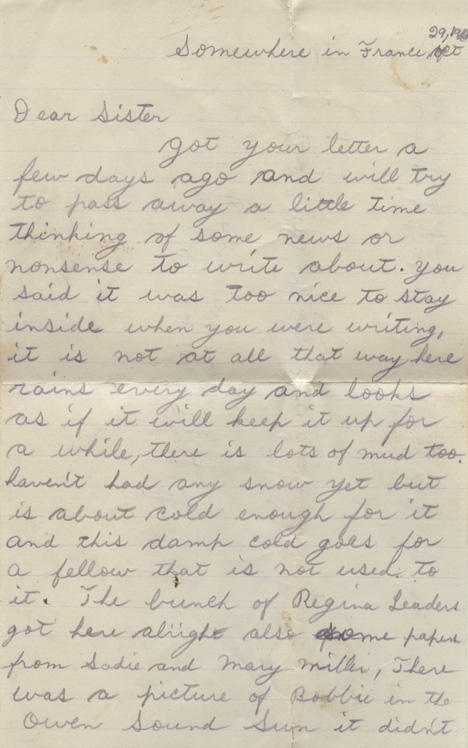 29, 19
Somewhere in France, Oct
Dear Sister
Got your letter a
few days ago and will try
to pass away a little time
thinking of some news or
nonsense to write about. You
said it was too nice to stay
inside when you were writing,
it is not at all that way here
rains every day and looks
as if it will keep it up for
a while, there is lots of mud too.
haven't had any snow yet but
is about cold enough for it
and this damp cold goes for
a fellow that is not used to
it. The bunch of Regina Leaders
got here alright also some papers
from Sadie and Mary Miller, There
was a picture of Bobbie in the
Owen Sound Sun it didn't